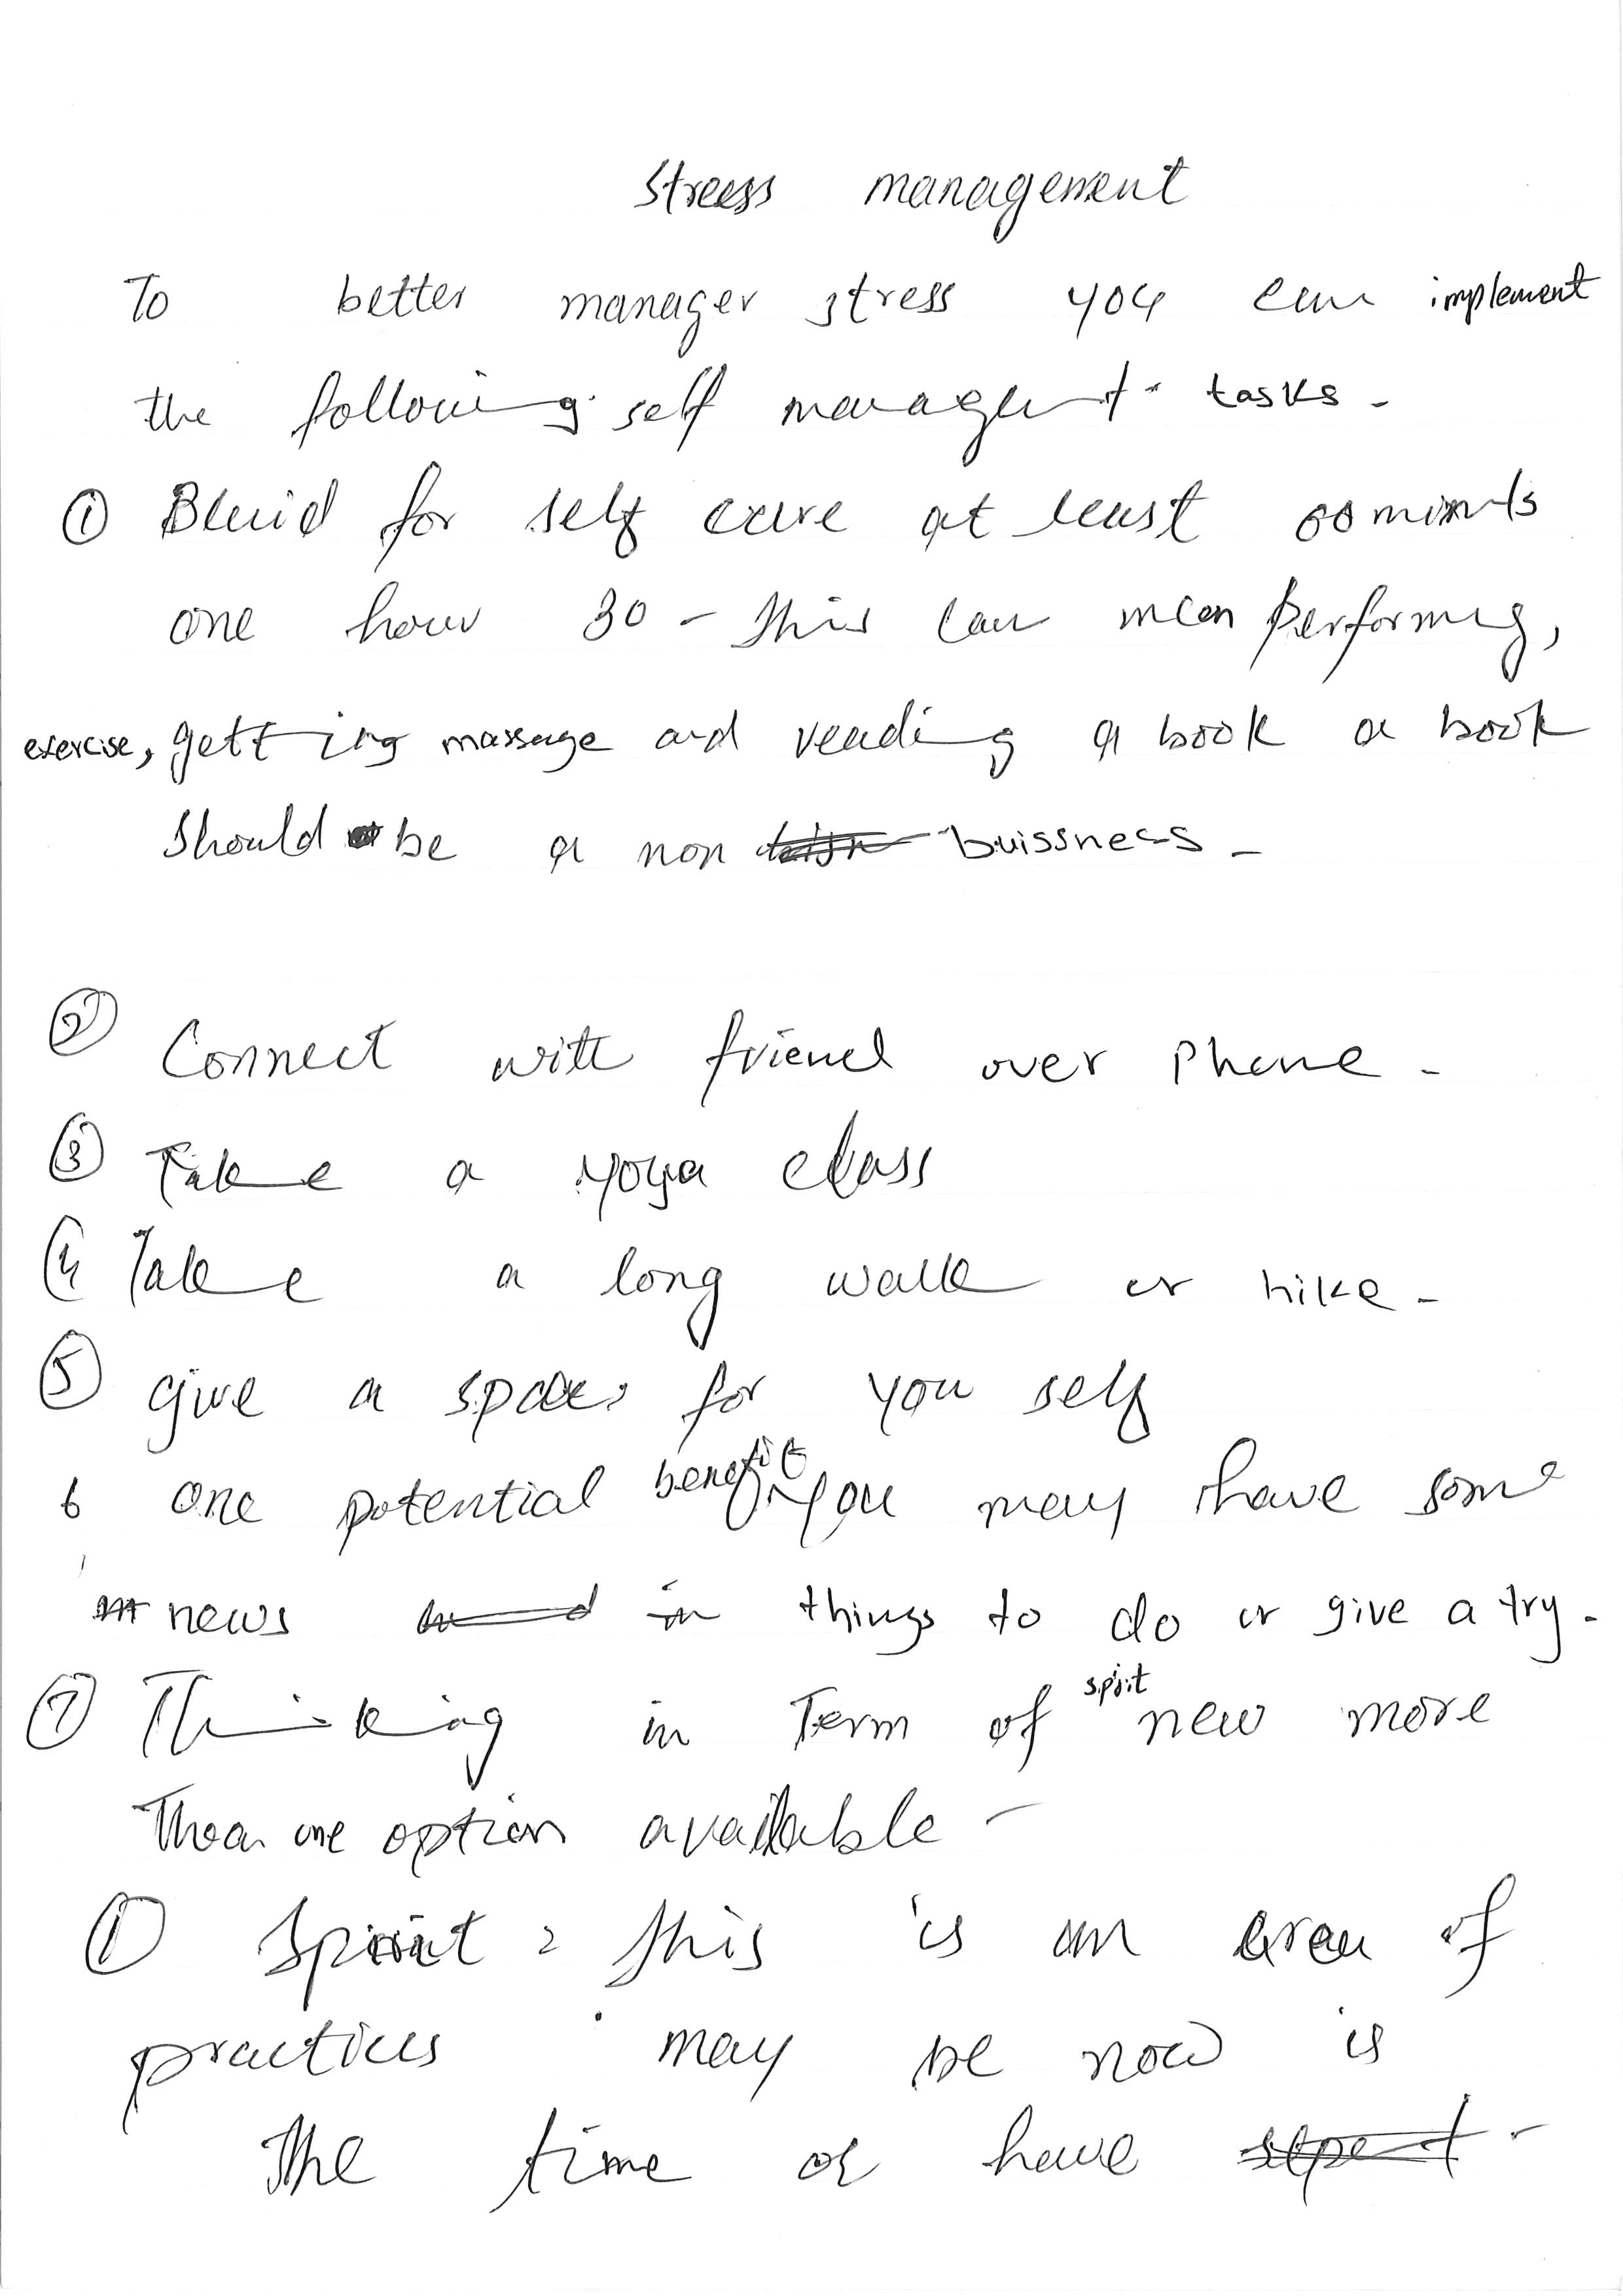 Streess management
To better manager stress you can implement
the following self managent tasks -
① Bluid for self care at least 60 minuts
one hour 30 - this can mean performing,
exercise, getting massage and reading a book a book
should be a non buissness -
② Connect with friend over phone -
③ Take a yoga class
④ Take a long walk or hike -
⑤ give a spaces for you self
6 one potential benefit you may have some
news in things to do or give a try -
⑦ Thinking in Term of spirit new more
Than one option available -
① Spirit : this is an area of
practices may be now is
The time or have